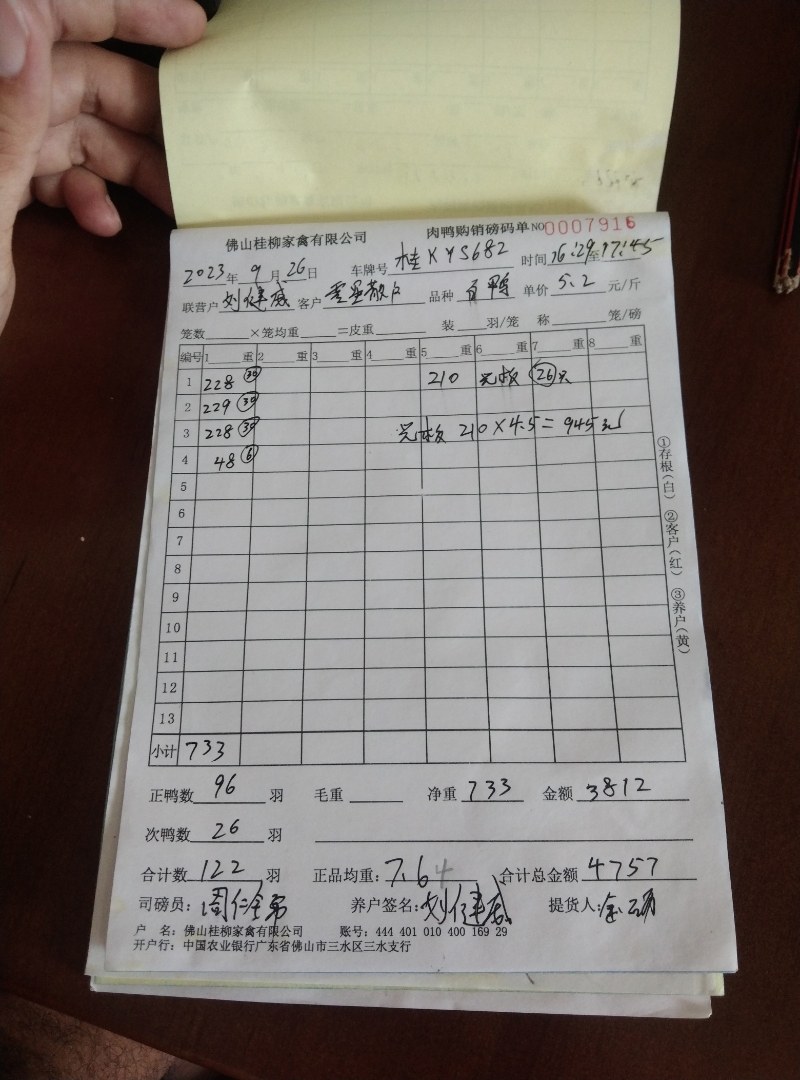 佛山桂柳家禽有限公司 肉鸭购销磅码单 NO 0007916
2023年9月26日 车牌号 桂KYS682 时间 16:29至17:45
联营户 刘健威 客户 散户 品种 鸭 单价 5.2 元/斤
笼数 ×笼均重 =皮重 装 羽/笼 称 笼/磅
编号 1 重 2 重 3 重 4 重 5 重 6 重 7 重 8 重
1 228 30 210 26只
2 229 30
3 228 30 210×4.5=945元
4 48 6
5
6
7
8
9
10
11
12
13
小计 733
①存根(白) ②客户(红) ③养户(黄)
正鸭数 96 羽 毛重 净重 733 金额 3812
次鸭数 26 羽
合计数 122 羽 正品均重: 7.64 合计总金额 4757
司磅员: 养户签名: 刘健威 提货人:
户 名: 佛山桂柳家禽有限公司 账号: 444 401 010 400 169 29
开户行: 中国农业银行广东省佛山市三水区三水支行